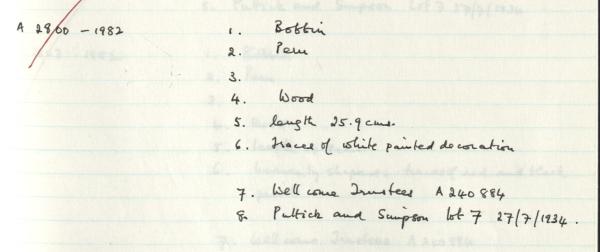 A 2800 - 1982
1. Bobbin
2. Peru
3.
4. Wood
5. length 25.9 cms.
6. traces of white painted decoration
7. Wellcome Trustees A 240884
8. Puttick and Simpson lot 7 27/7/1934.